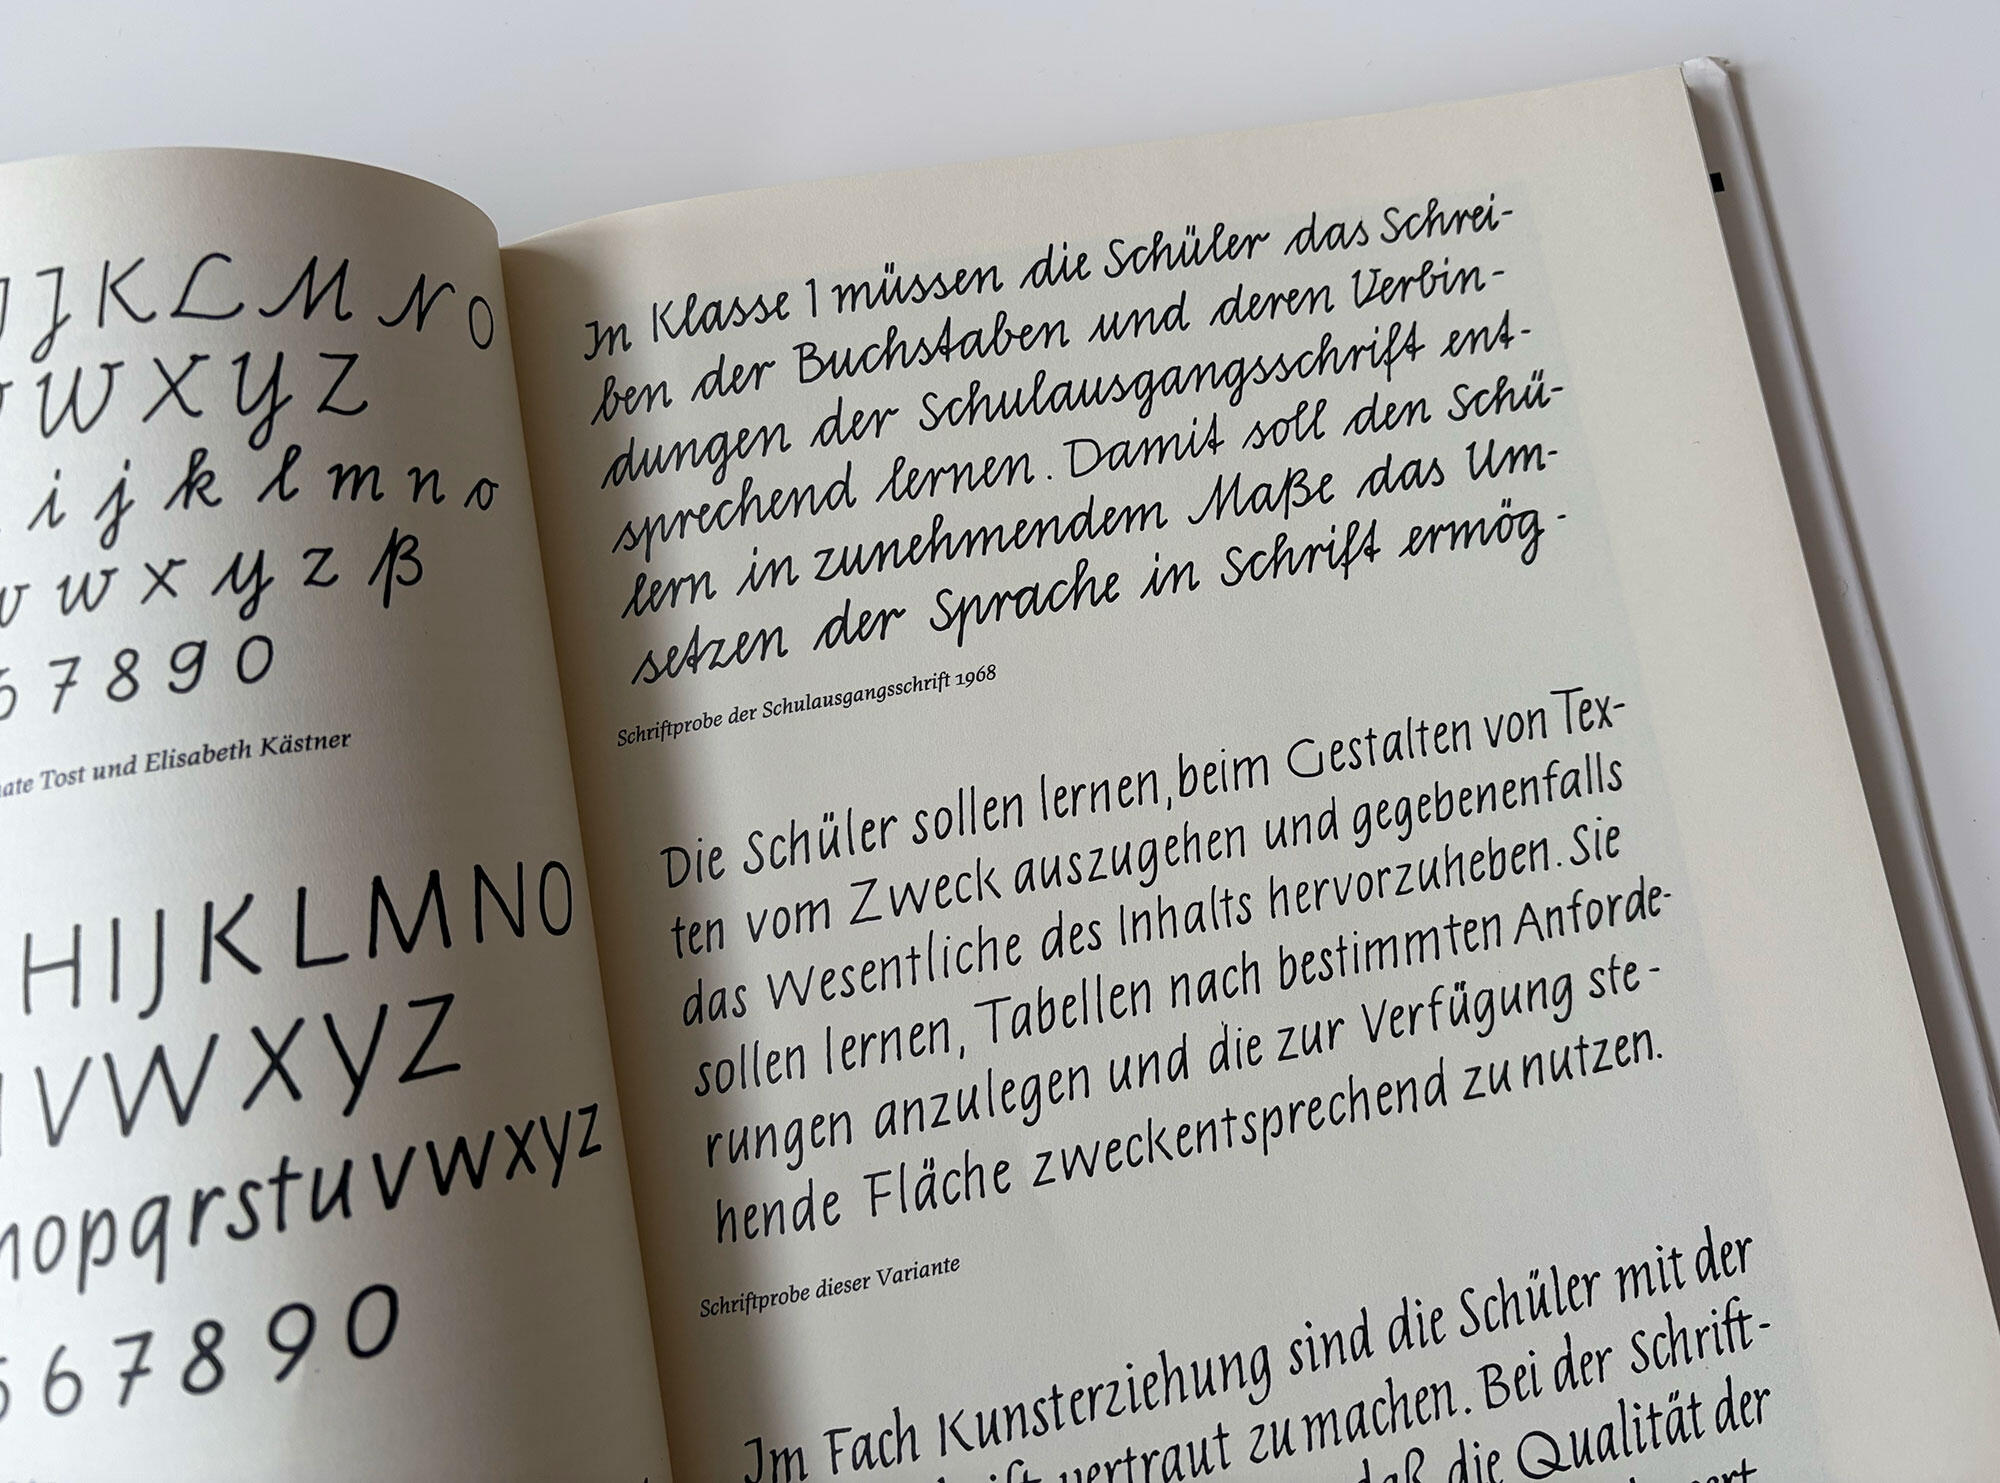 J K L M N O
W X Y Z
i j k l m n o
v w x y z ß
6 7 8 9 0
Tost und Elisabeth Kästner
H I J K L M N O
V W X Y Z
n o p q r s t u v w x y z
5 6 7 8 9 0
In Klasse 1 müssen die Schüler das Schrei-
ben der Buchstaben und deren Verbin-
dungen der Schulausgangsschrift ent-
sprechend lernen. Damit soll den Schü-
lern in zunehmendem Maße das Um-
setzen der Sprache in Schrift ermög-
Schriftprobe der Schulausgangsschrift 1968
Die Schüler sollen lernen, beim Gestalten von Tex-
ten vom Zweck auszugehen und gegebenenfalls
das Wesentliche des Inhalts hervorzuheben. Sie
sollen lernen, Tabellen nach bestimmten Anforde-
rungen anzulegen und die zur Verfügung ste-
hende Fläche zweckentsprechend zu nutzen.
Schriftprobe dieser Variante
Im Fach Kunsterziehung sind die Schüler mit der
vertraut zu machen. Bei der Schrift-
daß die Qualität der